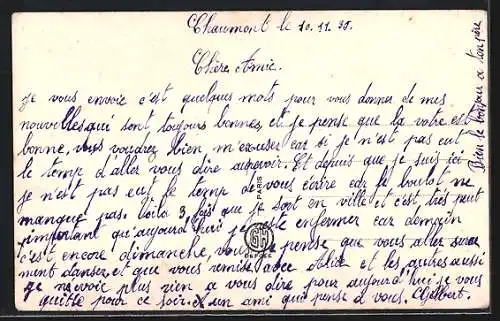 Chaumont le 10.11.35.
Chère Amie.
Je vous envoie c'est quelques mots pour vous donner de mes
nouvelles qui sont toujours bonnes, et je pense que la votre est
bonne, vous voudrez bien m'excuser car si je n'est pas eut
le temp d'aller vous dire aurevoir. Et depuis que je suis ici
je n'est pas eut le temp de vous écrire car le boulot ne
manque pas. Voila 3 fois que je sort en ville et c'est très peut
important qu'aujourd'hui je reste enfermer car demain
c'est encore dimanche, vous je pense que vous allez
ment danser et que vous avec Alice et les autres aussi
je ne voie plus rien a vous dire pour aujourd'hui je vous
quitte pour ce soir. un ami qui pense a vous. Gilbert.
Bien le bonjour a ton père
PARIS
DÉPOSÉ